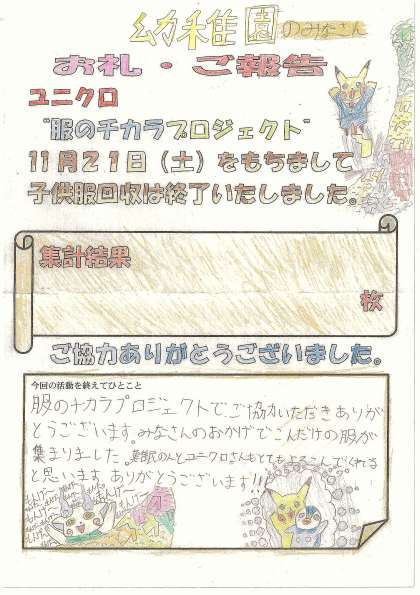 幼稚園のみなさん
お礼・ご報告
ユニクロ
"服のチカラプロジェクト"
11月21日（土）をもちまして
子供服回収は終了いたしました。
集計結果
枚
ご協力ありがとうございました。
今回の活動を終えてひとこと
服のチカラプロジェクトで、ご協力いただきありが
とうございます。みなさんのおかげでこんだけの服が
集まりました。難民の人とユニクロさんもとてもよろこんでくれてる
と思います ありがとうございます!!